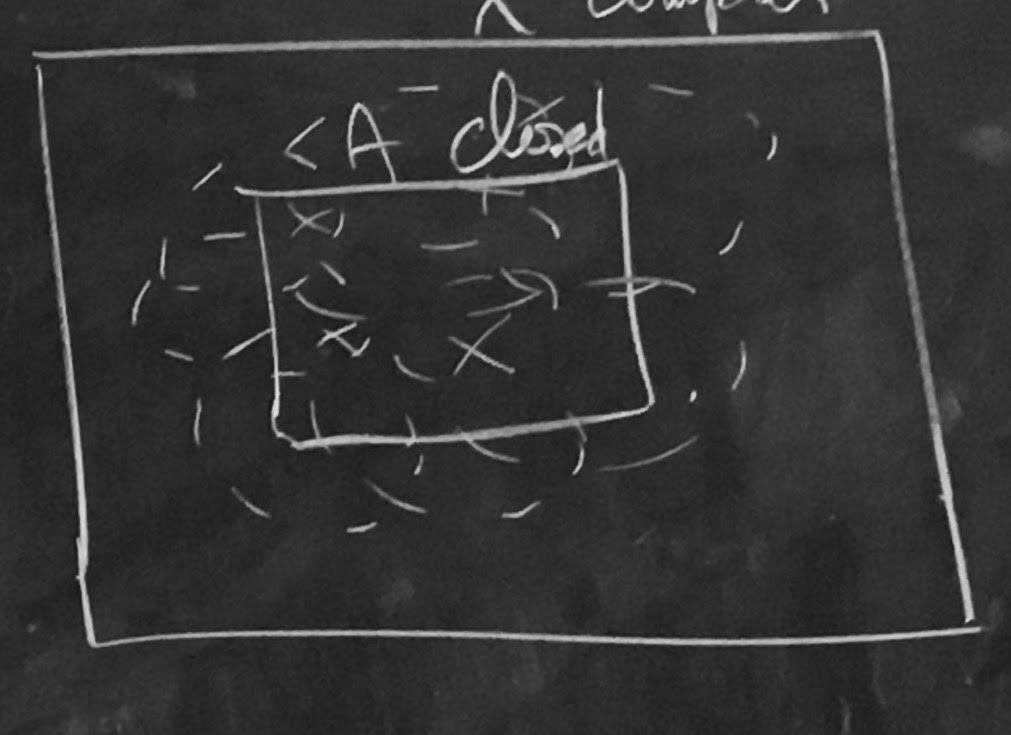 X compact
A closed